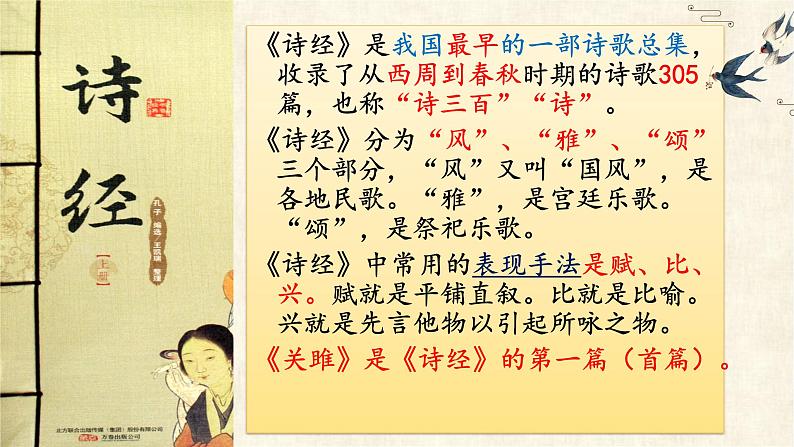 诗
经
【上册】
孔子 编选／王凯瑞 整理
北方联合出版传媒（集团）股份有限公司
万卷出版公司
《诗经》是我国最早的一部诗歌总集，
收录了从西周到春秋时期的诗歌305
篇，也称“诗三百”“诗”。
《诗经》分为“风”、“雅”、“颂”
三个部分，“风”又叫“国风”，是
各地民歌。“雅”，是宫廷乐歌。
“颂”，是祭祀乐歌。
《诗经》中常用的表现手法是赋、比、
兴。赋就是平铺直叙。比就是比喻。
兴就是先言他物以引起所咏之物。
《关雎》是《诗经》的第一篇（首篇）。